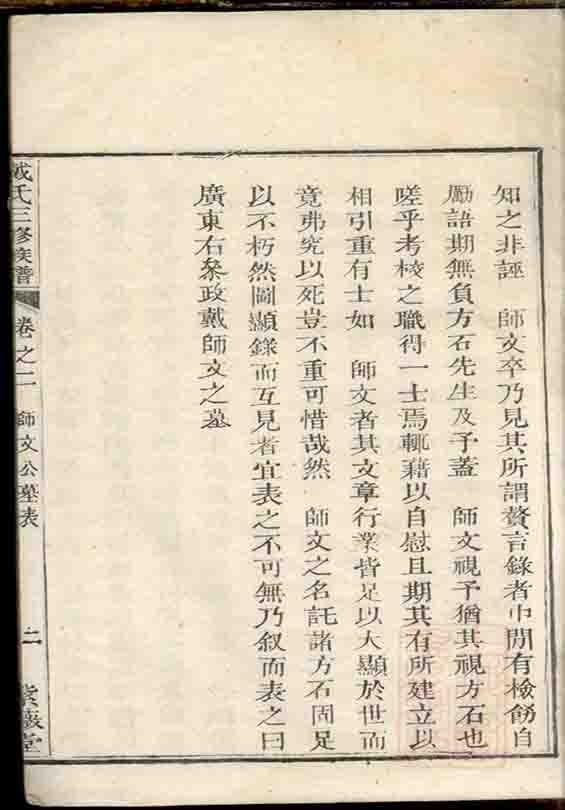 知之非誣　師文卒乃見其所謂贅言錄者中間有檢飭自
勵語期無負方石先生及予蓋　師文視予猶其視方石也
嗟乎考校之職得一士焉輒藉以自慰且期其有所建立以
相引重有士如　師文者其文章行業皆足以大顯於世而
竟弗究以死豈不重可惜哉然　師文之名託諸方石固足
以不朽然圖顯錄而互見者宜表之不可無乃叙而表之曰
廣東右叅政戴師文之墓
氏三修族譜
卷之二
師文公墓表
二
紫薇堂